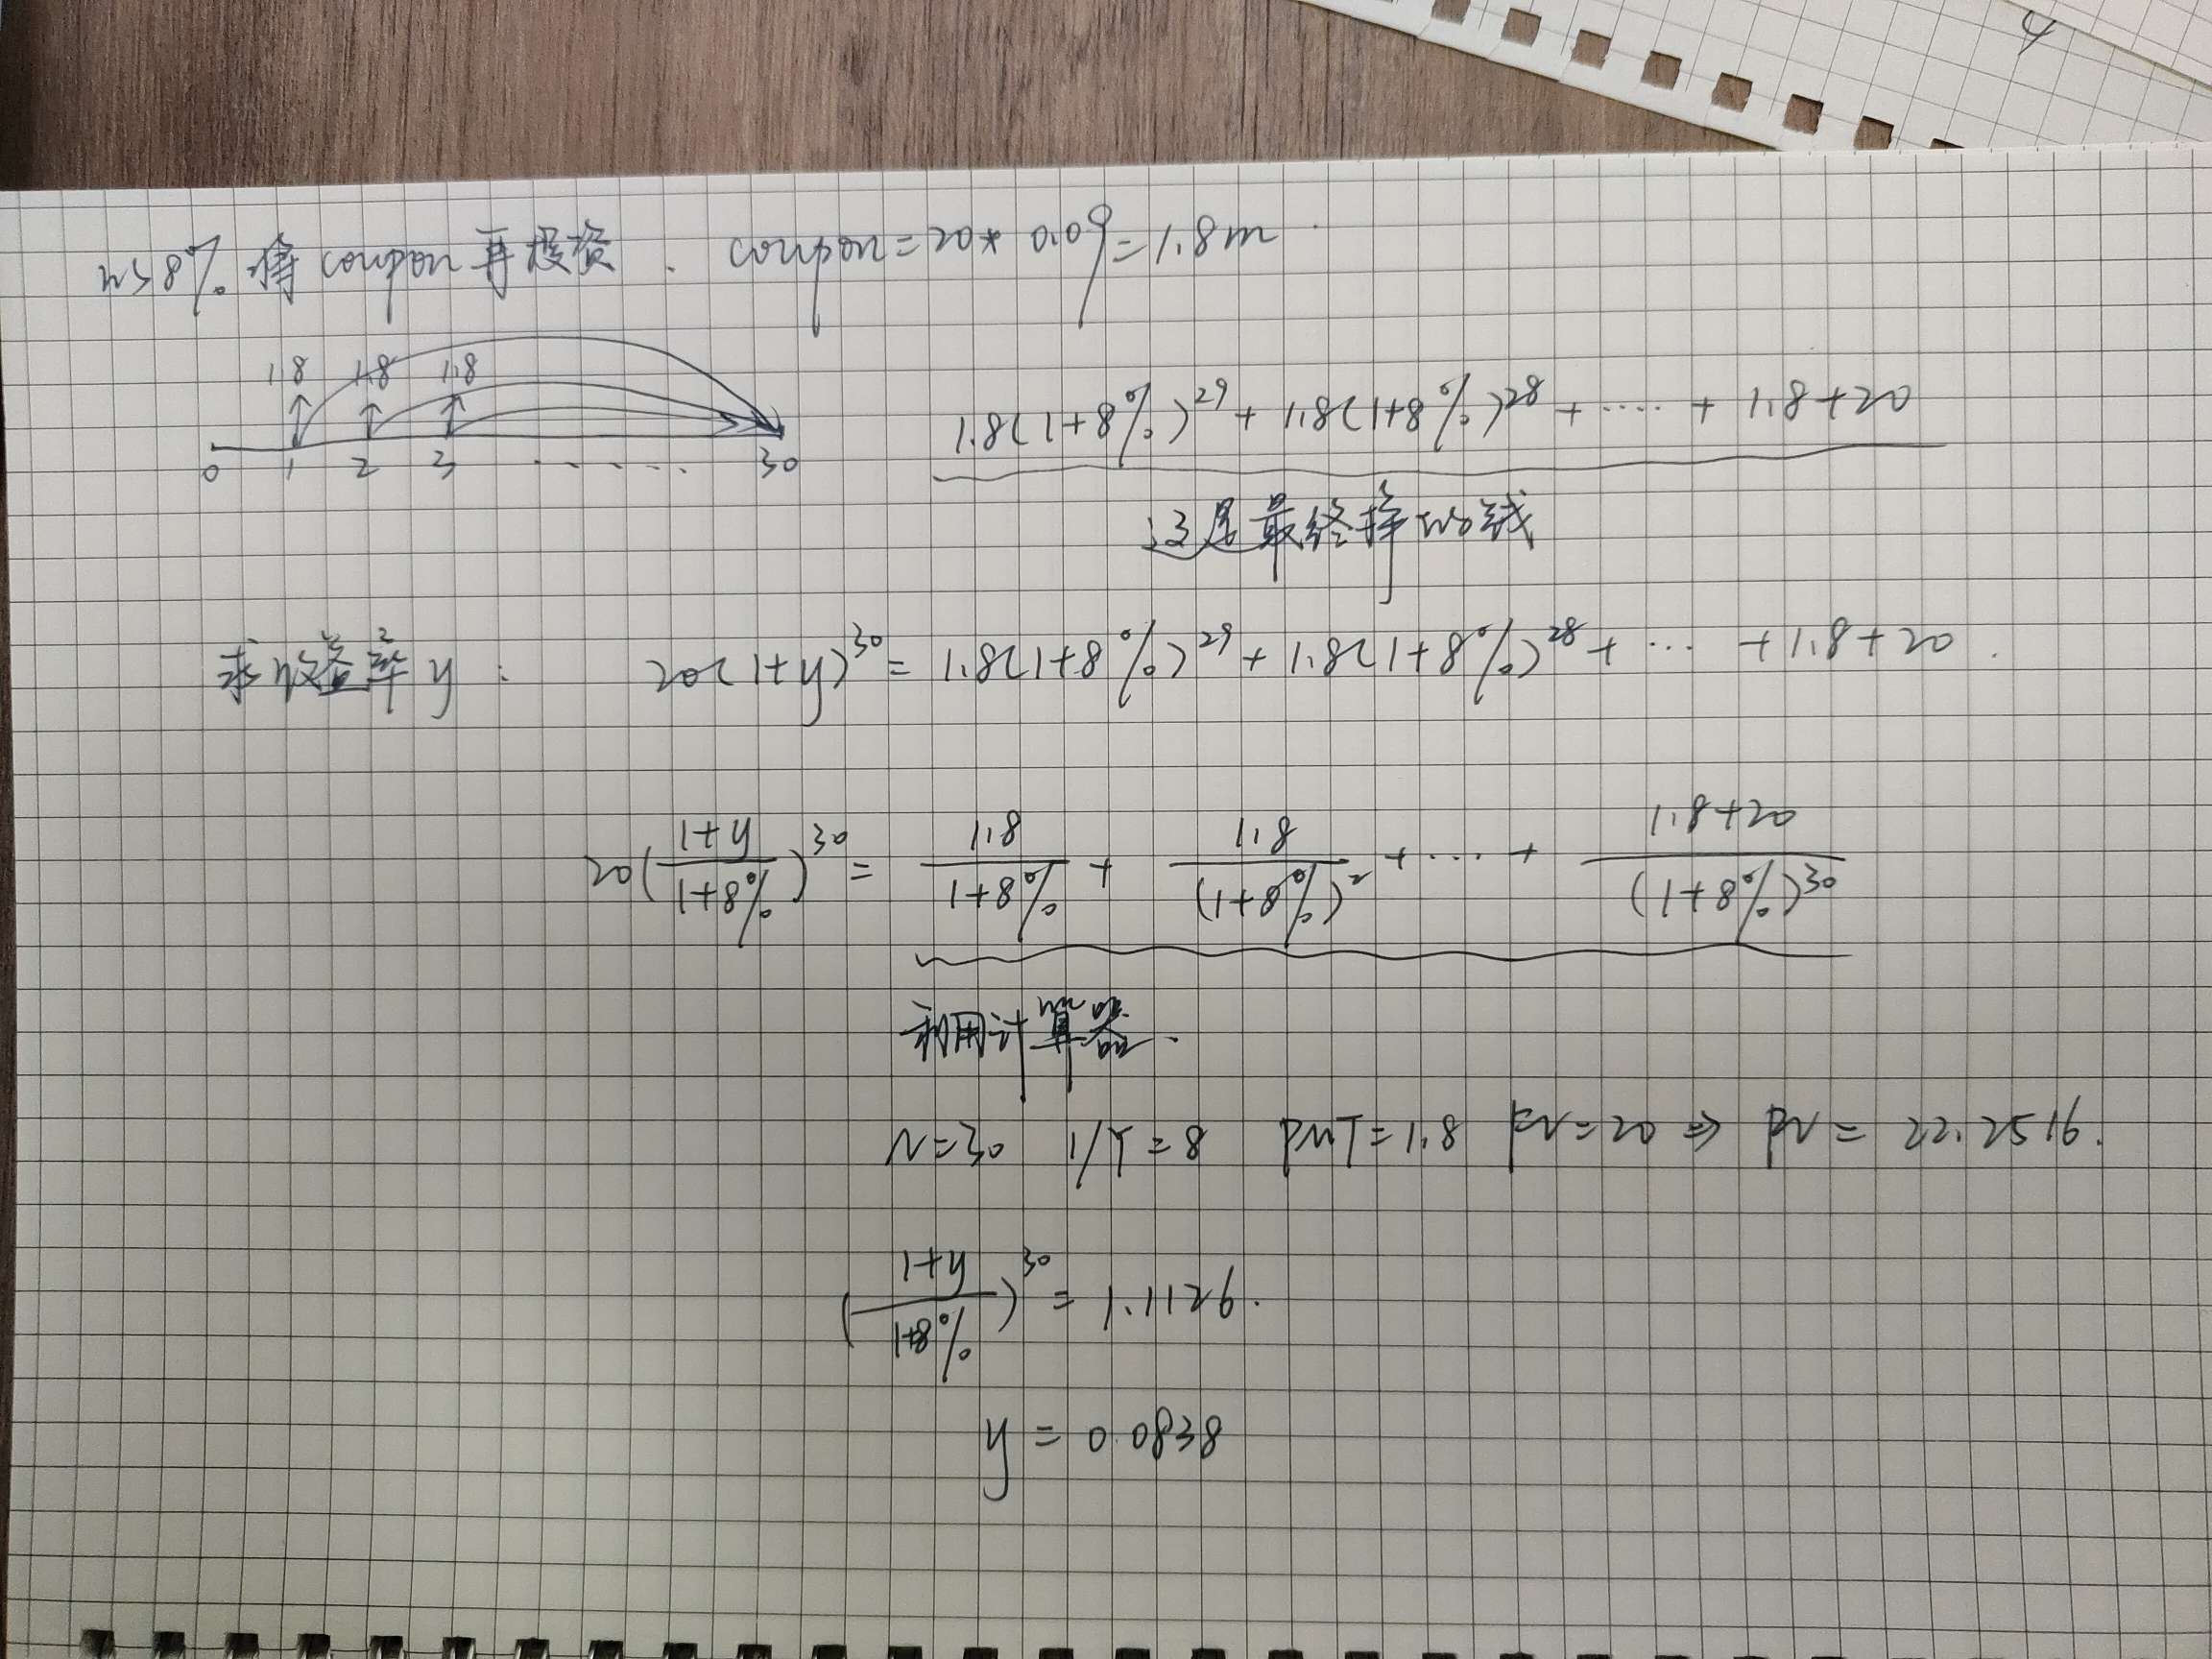 以8%将coupon再投资. coupon=20*0.09=1.8m.
1.8 1.8 1.8
0 1 2 3 ...... 30
1.8(1+8%)^29+1.8(1+8%)^28+·····+1.8+20
这是最终挣的钱
求收益率y: 20(1+y)^30=1.8(1+8%)^29+1.8(1+8%)^28+···+1.8+20.
20((1+y)/(1+8%))^30=1.8/(1+8%)+1.8/(1+8%)^2+····+(1.8+20)/(1+8%)^30
利用计算器.
N=30 I/Y=8 PMT=1.8 FV=20 => PV=22.2516.
((1+y)/(1+8%))^30=1.1126.
y=0.0838
4